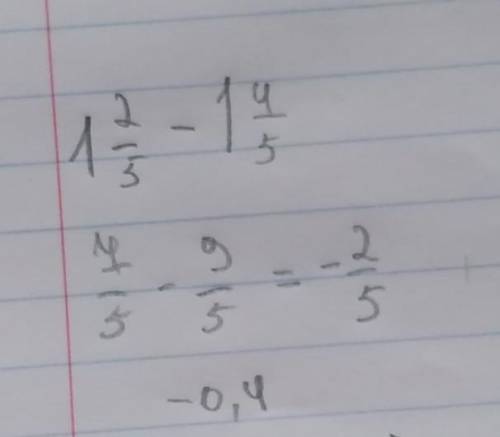 1 2/5 - 1 4/5
7/5 - 9/5 = -2/5
-0,4